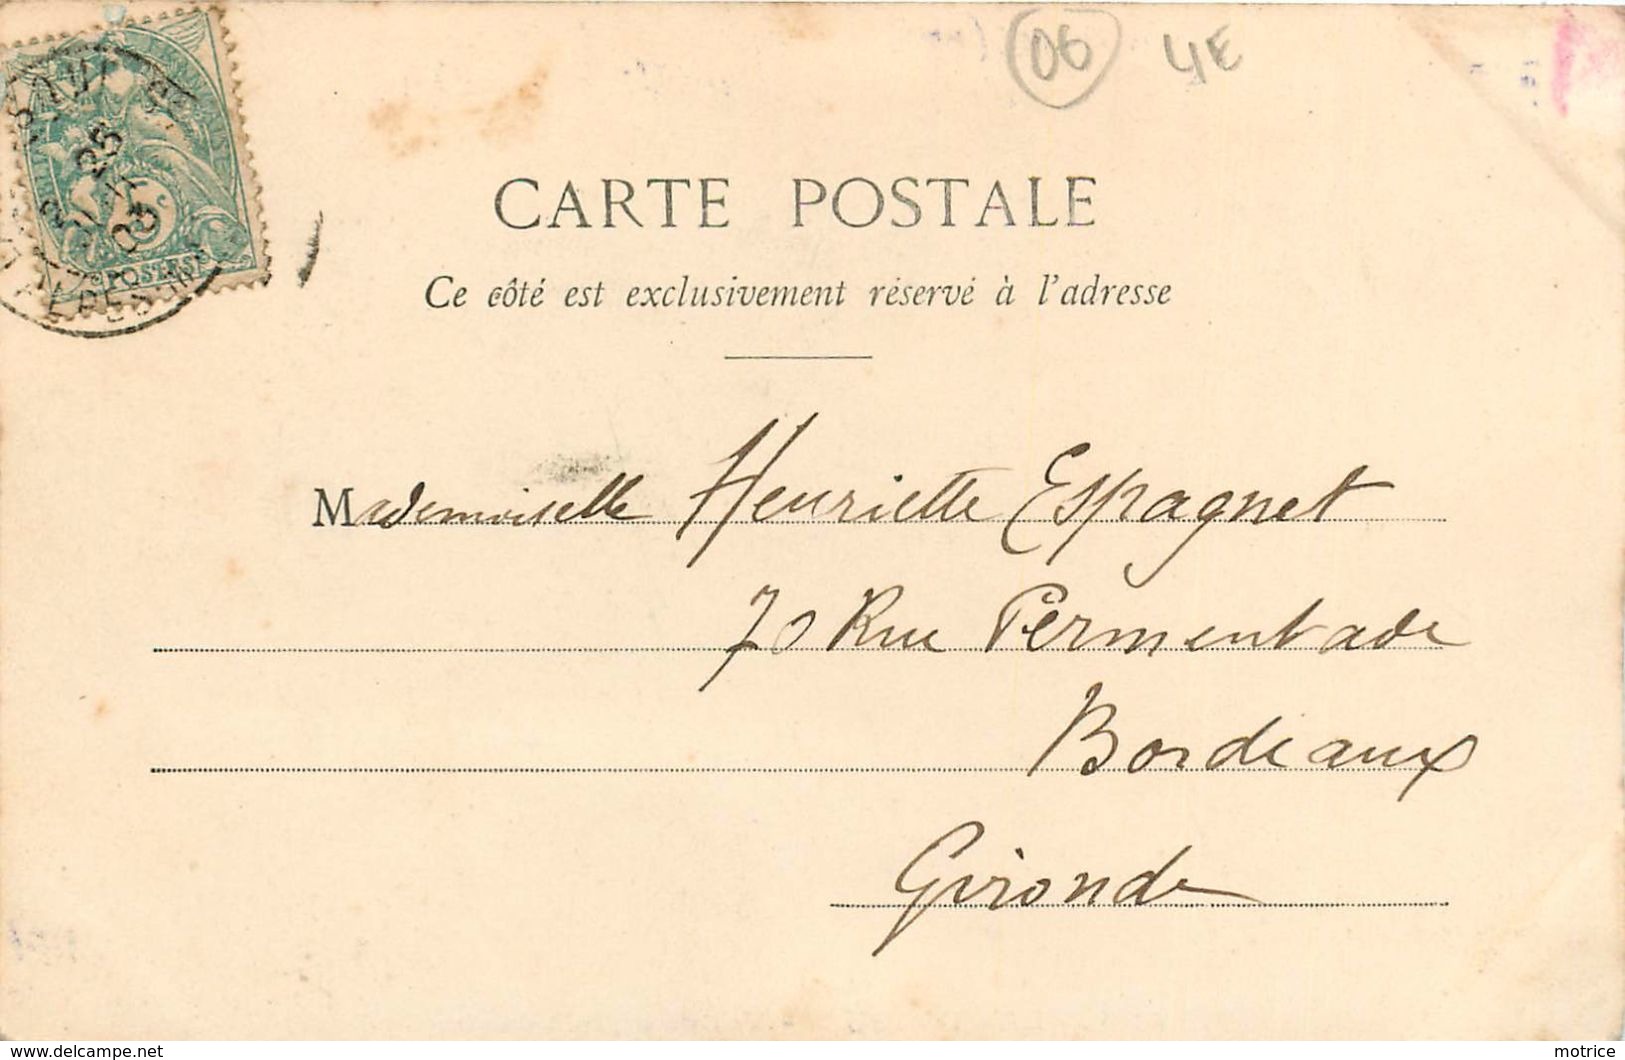 06 4E
CARTE POSTALE
Ce côté est exclusivement réservé à l'adresse
Mademoiselle Henriette Espagnet
70 Rue Permentade
Bordeaux
Gironde
25
03
5c
POSTES
ALPES-M
motrice